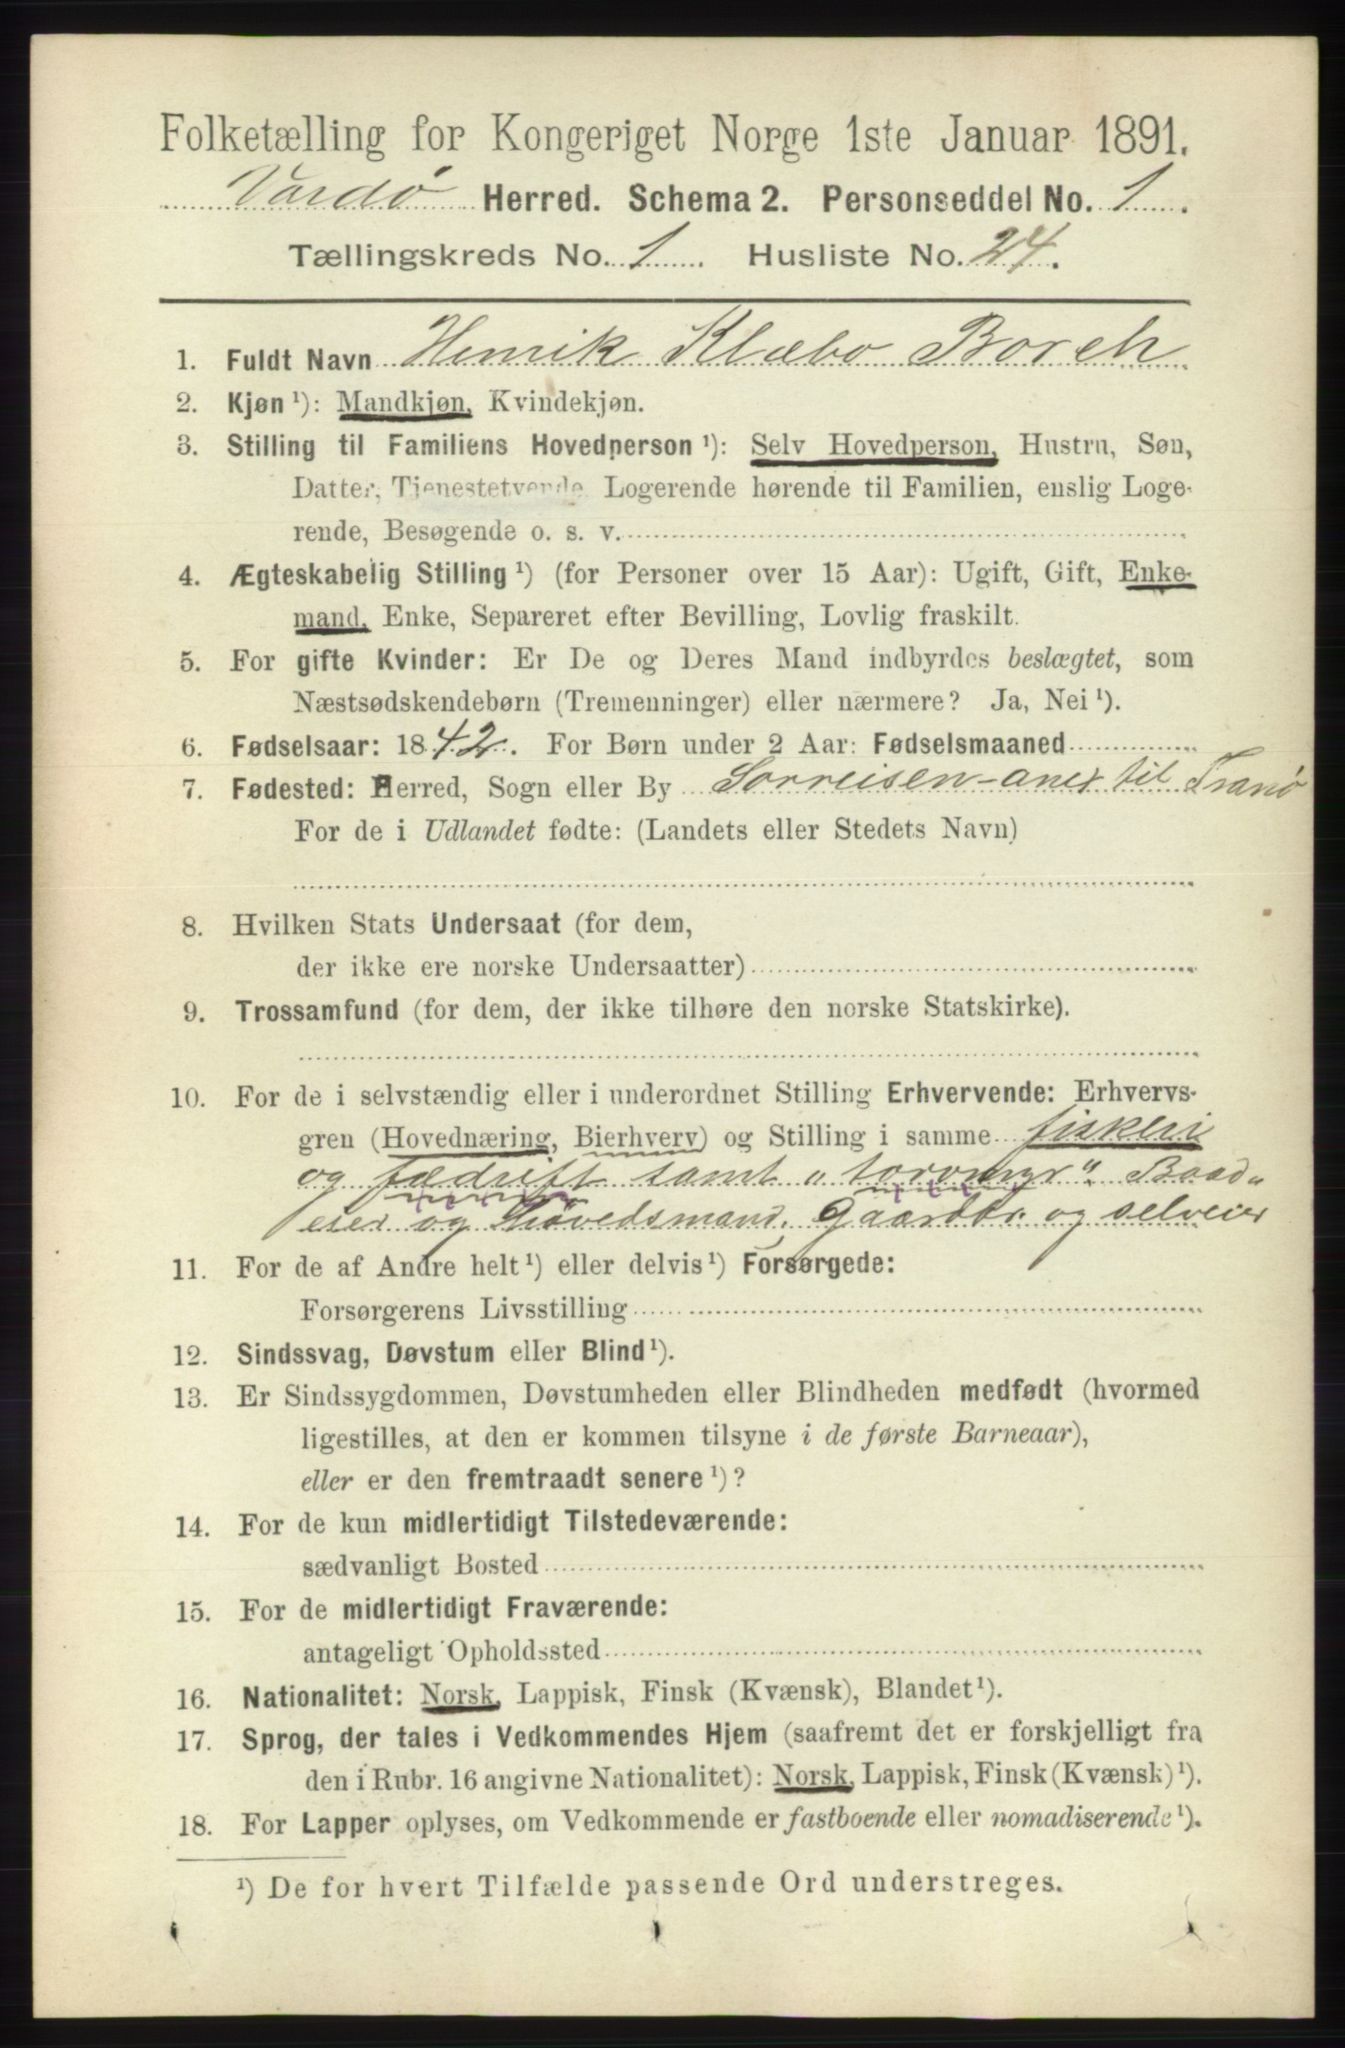 Folketælling for Kongeriget Norge 1ste Januar 1891.
Vardø Herred. Schema 2. Personseddel No. 1.
Tællingskreds No. 1. Husliste No. 24.
1. Fuldt Navn Henrik Klæbo Borch
2. Kjøn ¹): Mandkjøn, Kvindekjøn.
3. Stilling til Familiens Hovedperson ¹): Selv Hovedperson, Hustru, Søn,
Datter, Tjenestetyende, Logerende hørende til Familien, enslig Loge-
rende, Besøgende o. s. v.
4. Ægteskabelig Stilling ¹) (for Personer over 15 Aar): Ugift, Gift, Enke-
mand, Enke, Separeret efter Bevilling, Lovlig fraskilt.
5. For gifte Kvinder: Er De og Deres Mand indbyrdes beslægtet, som
Næstsødskendebørn (Tremenninger) eller nærmere? Ja, Nei ¹).
6. Fødselsaar: 1842. For Børn under 2 Aar: Fødselsmaaned
7. Fødested: Herred, Sogn eller By Sorreisen-anex til Tranø
For de i Udlandet fødte: (Landets eller Stedets Navn)
8. Hvilken Stats Undersaat (for dem,
der ikke ere norske Undersaatter)
9. Trossamfund (for dem, der ikke tilhøre den norske Statskirke).
10. For de i selvstændig eller i underordnet Stilling Erhvervende: Erhvervs-
gren (Hovednæring, Bierhverv) og Stilling i samme fiskeri
og fædrift samt "torvmyr". Baad-
eier og Høvedsmand, Gaardbr. og selveier
11. For de af Andre helt ¹) eller delvis ¹) Forsørgede:
Forsørgerens Livsstilling
12. Sindssvag, Døvstum eller Blind ¹).
13. Er Sindssygdommen, Døvstumheden eller Blindheden medfødt (hvormed
ligestilles, at den er kommen tilsyne i de første Barneaar),
eller er den fremtraadt senere ¹)?
14. For de kun midlertidigt Tilstedeværende:
sædvanligt Bosted
15. For de midlertidigt Fraværende:
antageligt Opholdssted
16. Nationalitet: Norsk, Lappisk, Finsk (Kvænsk), Blandet ¹).
17. Sprog, der tales i Vedkommendes Hjem (saafremt det er forskjelligt fra
den i Rubr. 16 angivne Nationalitet): Norsk, Lappisk, Finsk (Kvænsk) ¹).
18. For Lapper oplyses, om Vedkommende er fastboende eller nomadiserende ¹).
¹) De for hvert Tilfælde passende Ord understreges.